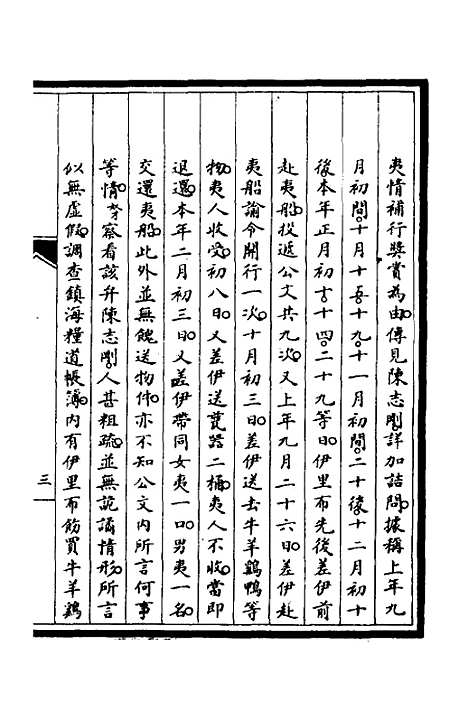 夷情補行獎賞為由。傳見陳志剛詳加詰問。據稱上年九
月初間。十月十五十九。十一月初間。二十後十二月初十
後本年正月初十。十四。二十九等日。伊里布先後差伊前
赴夷船。投遞公文共九次。又上年九月二十六日。差伊赴
夷船諭令開行一次。十月初三日。差伊送去牛羊鷄鴨等
物。夷人收受。初八日。又差伊送瓷器二桶。夷人不收。當即
退還。本年二月初三日。又差伊帶同女夷一口。男夷一名。
交還夷船。此外並無餽送物件。亦不知公文內所言何事
等情。芳察看該弁陳志剛。人甚粗疏。並無詭譎情形。所言
似無虛假。調查鎮海糧道帳簿。內有伊里布飭買牛羊鷄
三